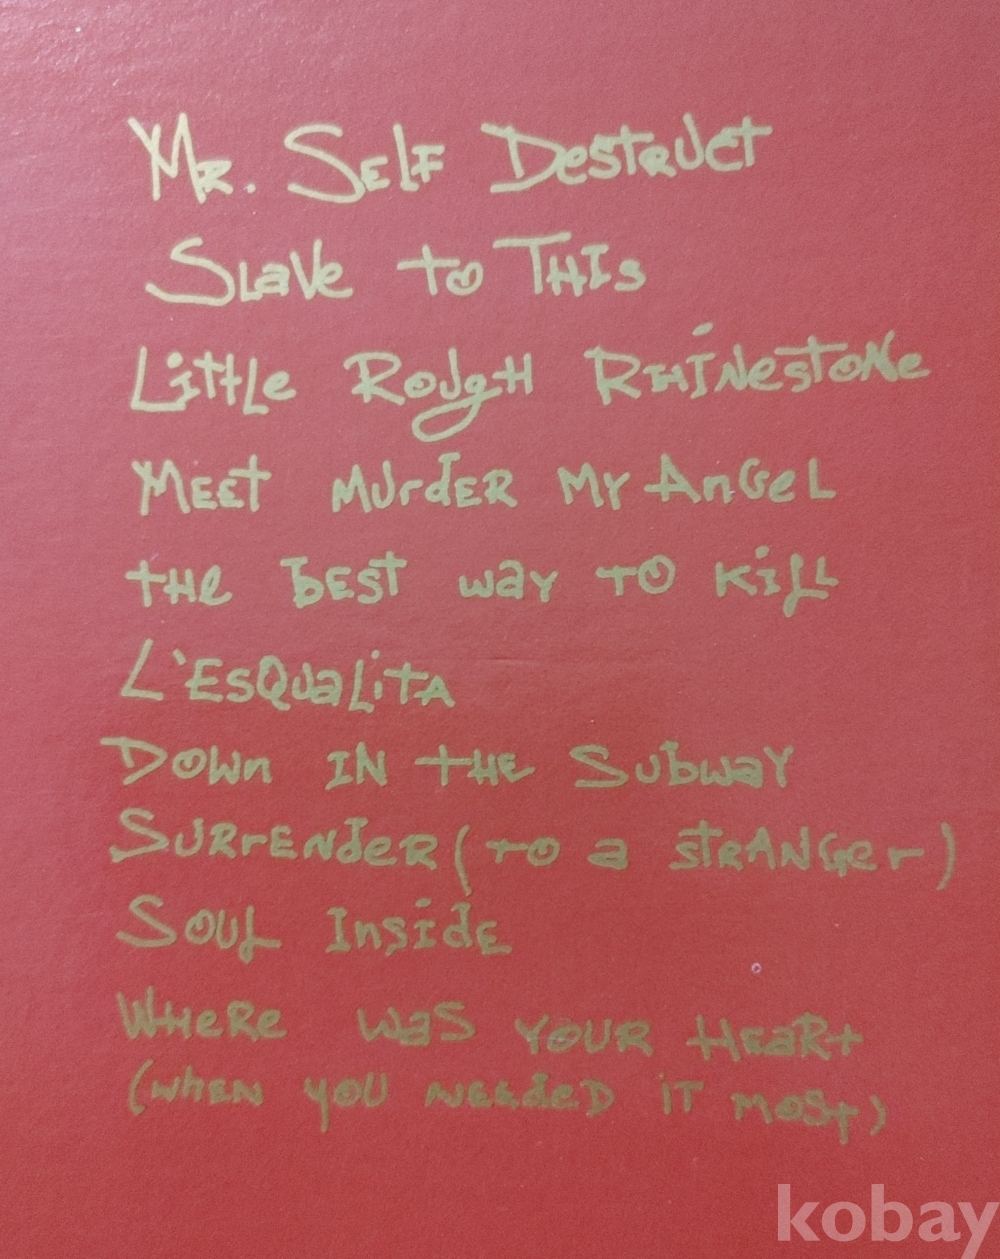 Mr. Self Destruct
Slave to This
Little Rough Rhinestone
Meet Murder My Angel
the best way to kill
L'Esqualita
Down in the Subway
Surrender (to a stranger)
Soul Inside
Where was your heart
(when you needed it most)
kobay